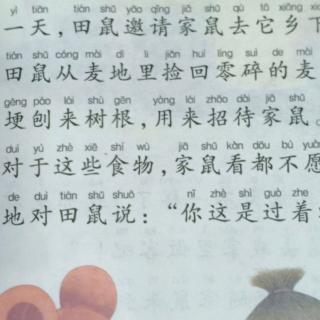 yì tiān tián shǔ yāo qǐng jiā shǔ qù tā xiāng
一天，田鼠邀请家鼠去它乡下
tián shǔ cóng mài dì lǐ jiǎn huí líng suì de mài
田鼠从麦地里捡回零碎的麦
gěng páo lái shù gēn yòng lái zhāo dài jiā shǔ
埂刨来树根，用来招待家鼠。
duì yú zhè xiē shí wù jiā shǔ kàn dōu bú yuàn
对于这些食物，家鼠看都不愿
de duì tián shǔ shuō nǐ zhè shì guò zhe
地对田鼠说：“你这是过着